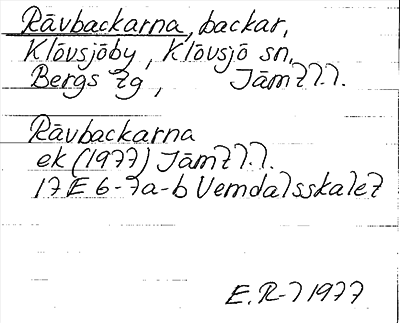 Rävbackarna, backar,
Klövsjöby, Klövsjö sn,
Bergs tg, Jämtl.l.
Rävbackarna
ek (1977) Jämtl.l.
17E 6-7a-b Vemdalsskalet
E.R-l 1977